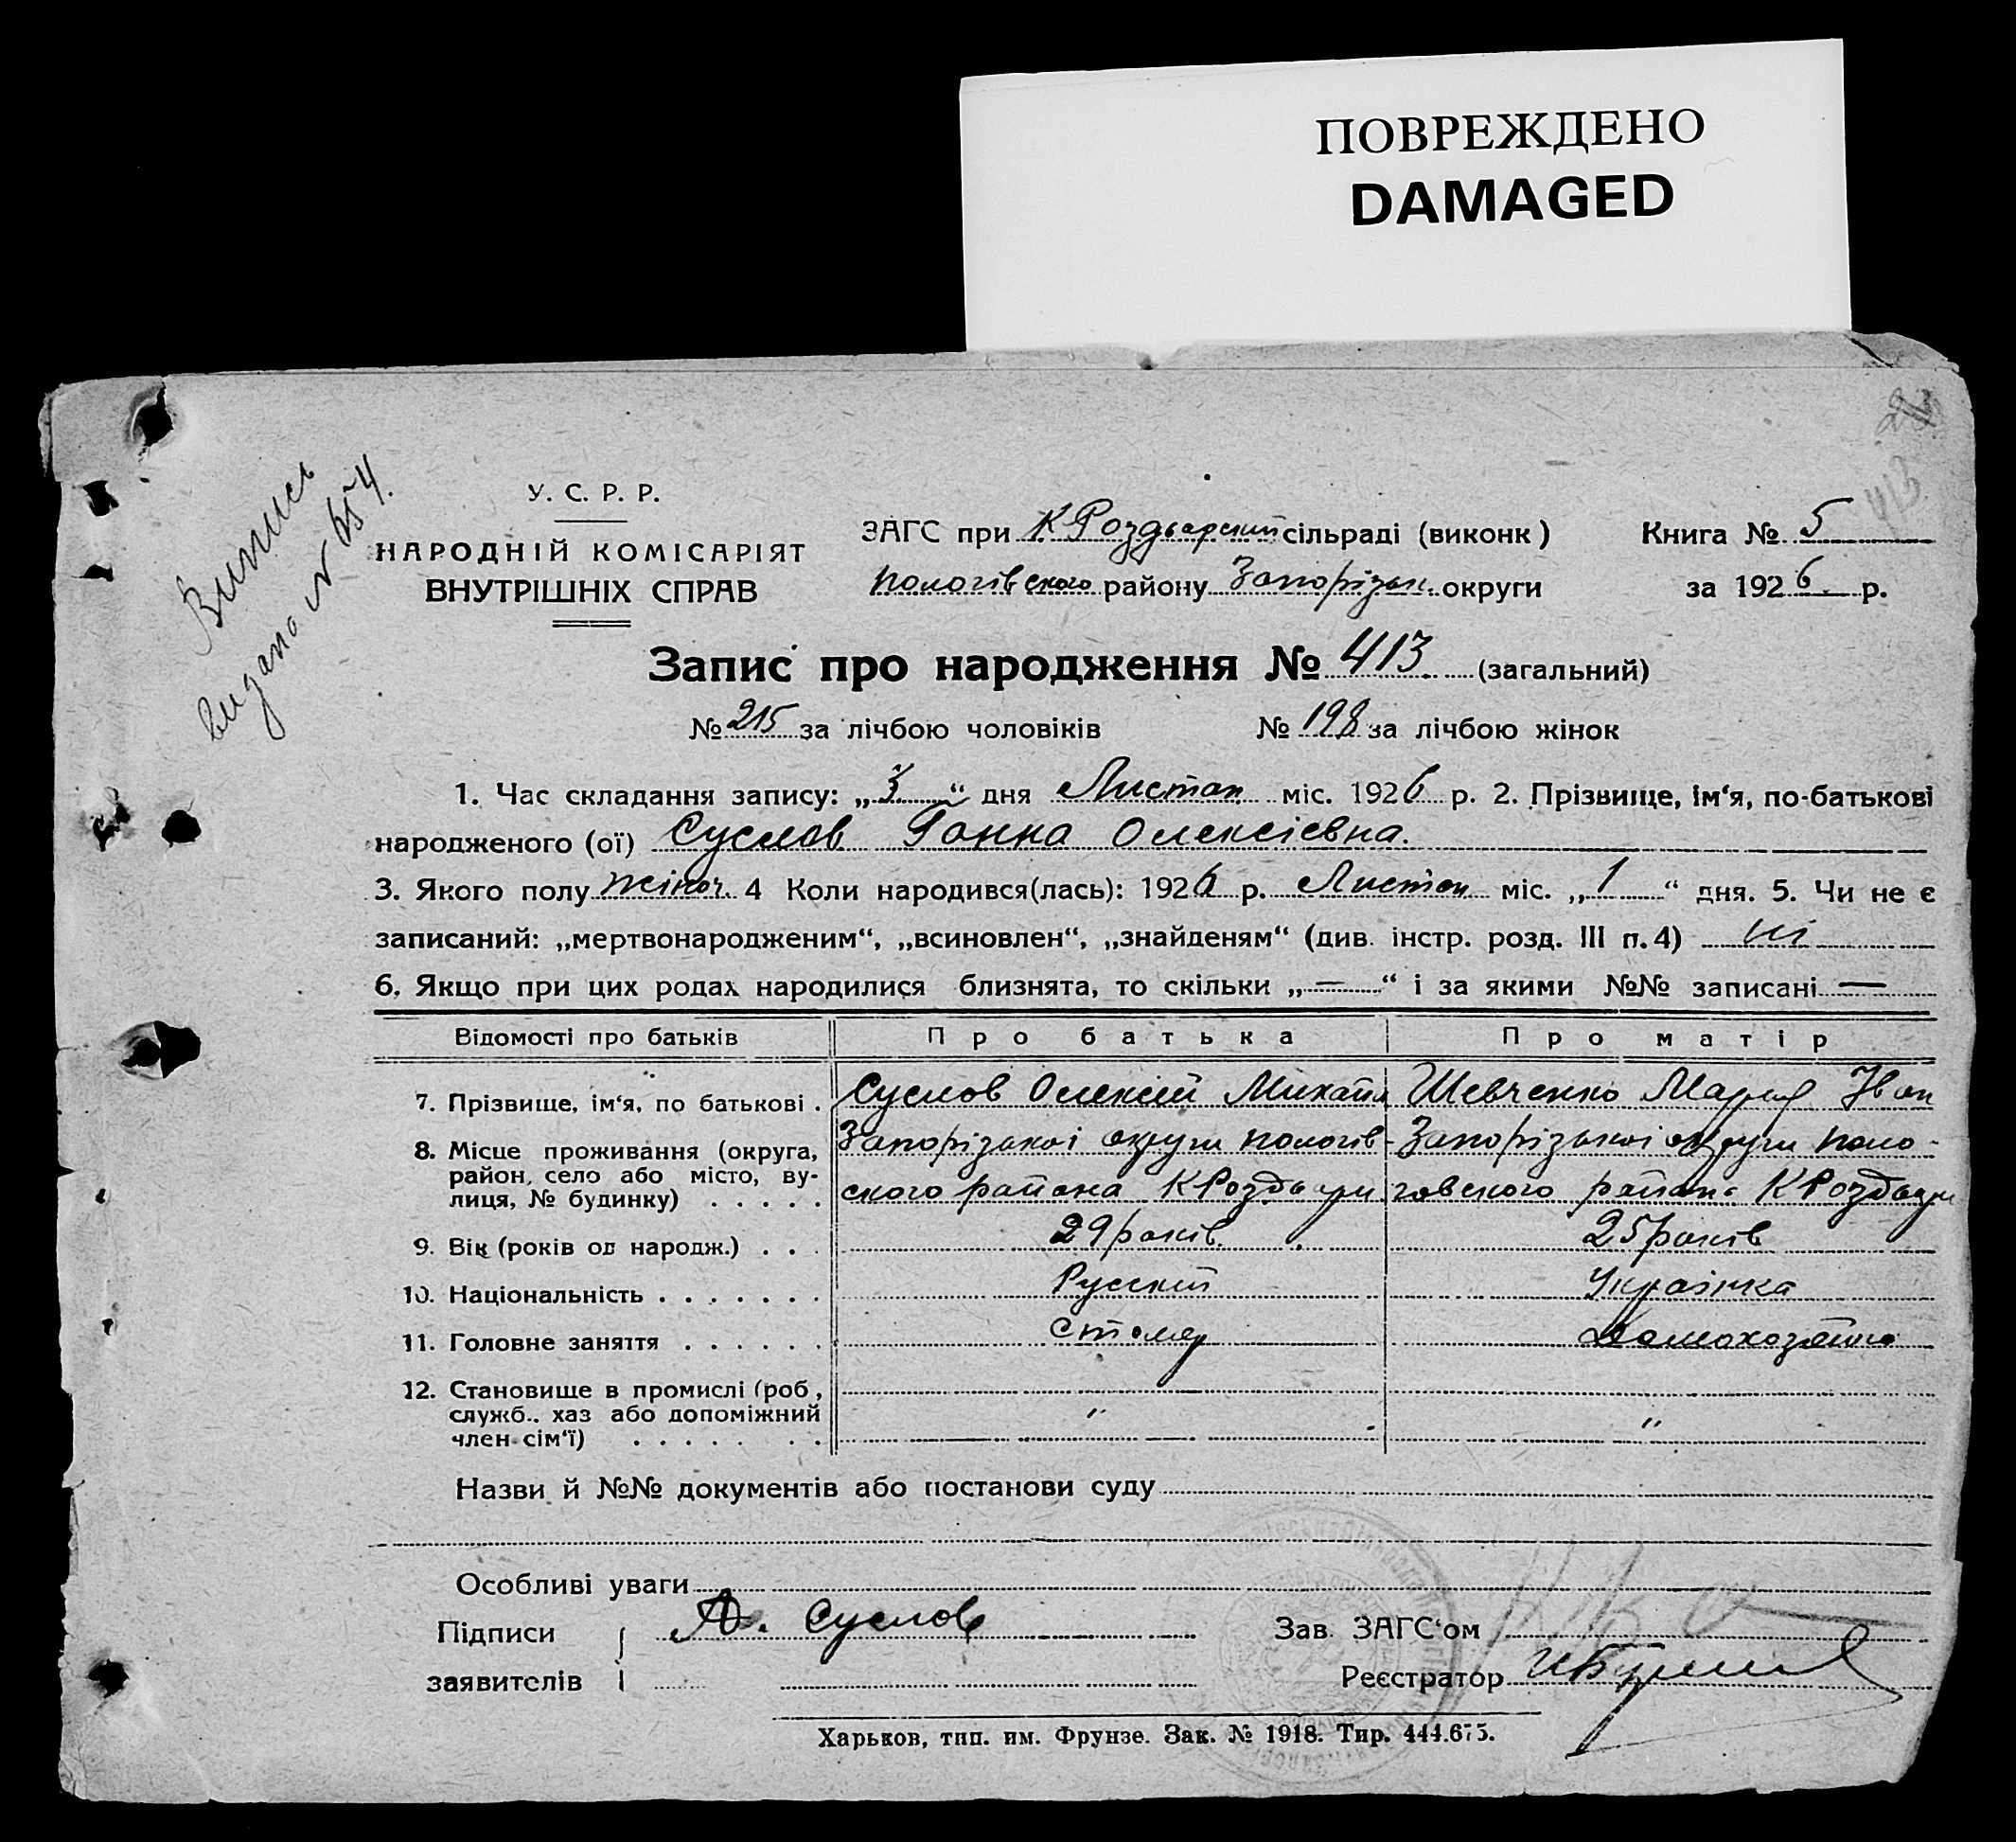 ПОВРЕЖДЕНО
DAMAGED
413
Випись
видано № 654.
У. С. Р. Р.
НАРОДНІЙ КОМІСАРІЯТ
ВНУТРІШНІХ СПРАВ
ЗАГС при К Роздорский сільраді (виконк)
Пологівского району Запорізьк. округи
Книга № 5
за 1926 р.
Запис про народження № 413 (загальний)
№ 215 за лічбою чоловіків № 198 за лічбою жінок
1. Час складання запису: „3“ дня Листоп міс. 1926 р. 2. Прізвище, ім‘я, по-батькові
народженого (ої) Суслов Ганна Олексієвна.
3. Якого полу жіноч. 4 Коли народився(лась): 1926 р. Листоп міс. „1“ дня. 5. Чи не є
записаний: „мертвонародженим“, „всиновлен“, „знайденям“ (див. інстр. розд. III п. 4) ні
6. Якщо при цих родах народилися близнята, то скільки „—“ і за якими №№ записані —
Відомості про батьків Про батька Про матір
7. Прізвище, ім‘я, по батькові . Суслов Олексій Михайл Шевченко Мария Іван
8. Місце проживання (округа, Запорізької округи пологів- Запорізької округи поло-
район, село або місто, ву- ского района К Роздори говского района К Роздори
лиця, № будинку) . . . . .
9. Вік (років од народж.) . . . 29 років. 25 років
10. Національність . . . . . . . Русский Українка
11. Головне заняття . . . . . . Столяр Домохозяйка
12. Становище в промислі (роб,
служб.. хаз або допоміжний " "
член сім‘ї) . . . . . . .
Назви й №№ документів або постанови суду
Особливі уваги
Підписи А. Суслов Зав. ЗАГС‘ом
заявителів Реєстратор
Харьков, тип. им. Фрунзе. Зак. № 1918. Тир. 444.675.